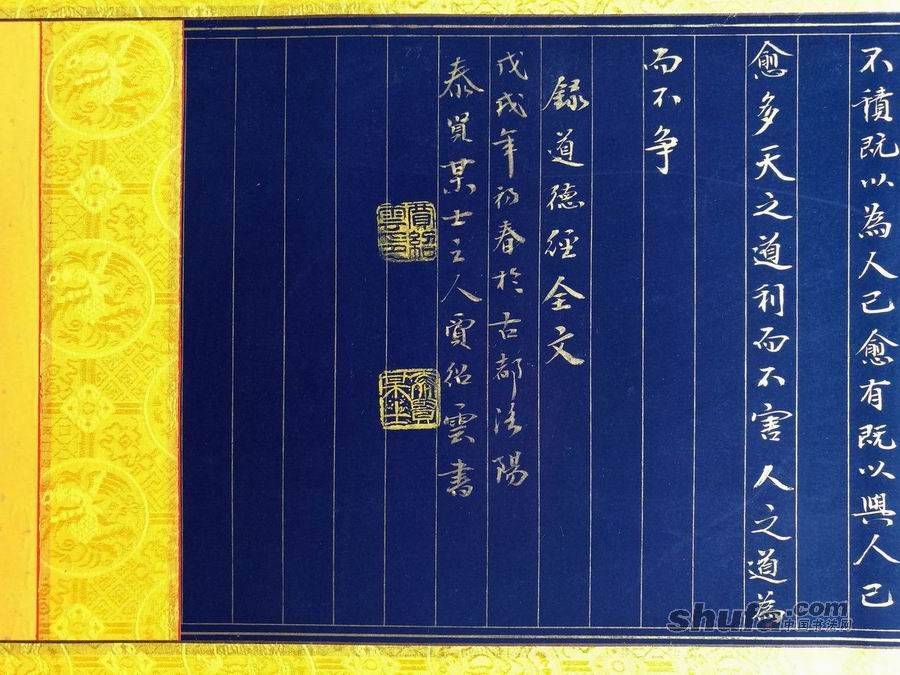 不積既以為人已愈有既以與人已
愈多天之道利而不害人之道為
而不争
録道德經全文
戊戌年初春於古都洛陽
泰賢某士主人賈紹雲書
shufa.com
中国书法网